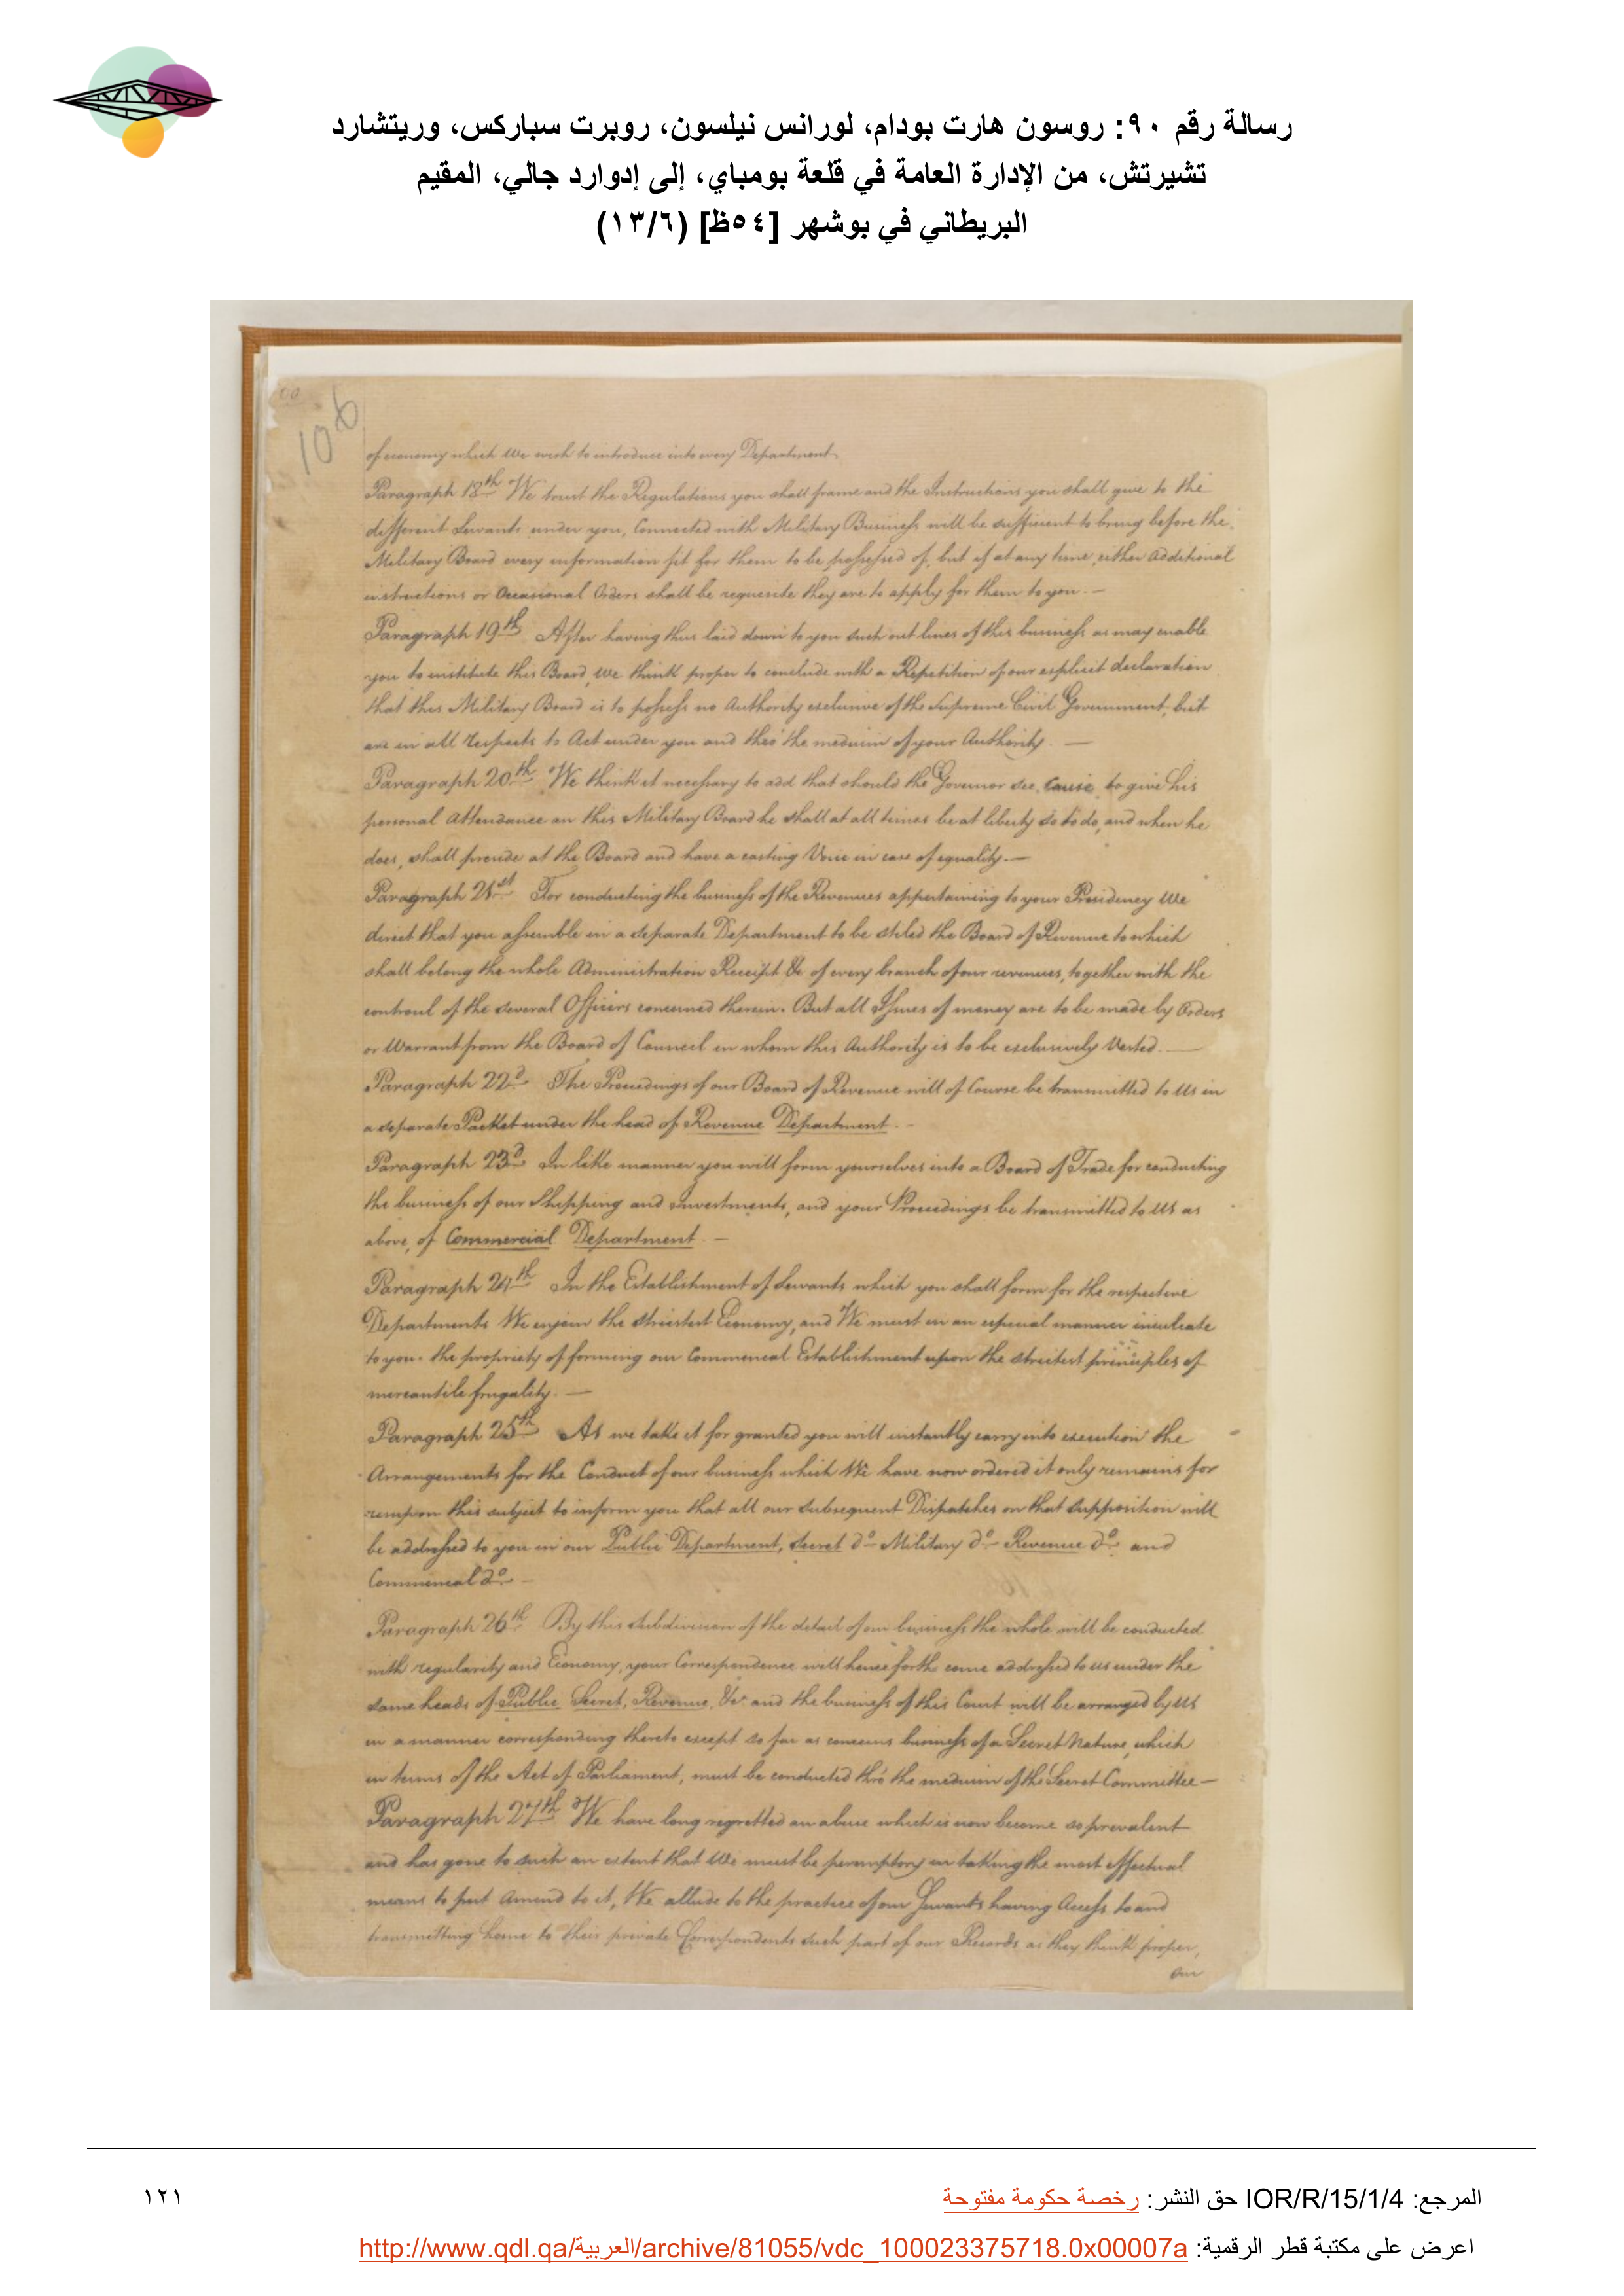 رسالة رقم ٩٠: روسون هارت بودام، لورانس نيلسون، روبرت سباركس، وريتشارد
تشيرتش، من الإدارة العامة في قلعة بومباي، إلى إدوارد جالي، المقيم
البريطاني في بوشهر [٥٤ظ] (١٣/٦)
106
of economy which We wish to introduce into every Department.
Paragraph 18th We trust the Regulations you shall frame and the Instructions you shall give to the
different Servants under you, Connected with Military Business will be sufficient to bring before the
Military Board every information fit for them to be possessed of, but if at any time either additional
instructions or Occasional Orders shall be requisite they are to apply for them to you. —
Paragraph 19th After having thus laid down to you such out lines of this business as may enable
you to institute this Board, We think proper to conclude with a Repetition of our explicit declaration
that this Military Board is to possess no Authority exclusive of the Supreme Civil Government, but
are in all respects to Act under you and thro' the medium of your Authority. —
Paragraph 20th We think it necessary to add that should the Governor see cause to give his
personal Attendance on this Military Board he shall at all times be at liberty so to do, and when he
does, shall preside at the Board and have a casting Voice in case of equality. —
Paragraph 21st For conducting the business of the Revenues appertaining to your Presidency We
direct that you assemble in a separate Department to be stiled the Board of Revenue to which
shall belong the whole Administration Receipt &c of every branch of our revenues, together with the
controul of the several Officers concerned therein. But all Issues of money are to be made by Orders
or Warrant from the Board of Council in whom this Authority is to be exclusively Vested. —
Paragraph 22d The Proceedings of our Board of Revenue will of Course be transmitted to Us in
a separate Packet under the head of Revenue Department. —
Paragraph 23d In like manner you will form yourselves into a Board of Trade for conducting
the business of our Shipping and Investments, and your Proceedings be transmitted to Us as
above, of Commercial Department. —
Paragraph 24th In the Establishment of Servants which you shall form for the respective
Departments We enjoin the strictest Economy, and We must in an especial manner inculcate
to you the propriety of forming our Commercial Establishment upon the strictest principles of
mercantile frugality. —
Paragraph 25th As we take it for granted you will instantly carry into execution the
Arrangements for the Conduct of our business which We have now ordered it only remains for
us upon this subject to inform you that all our subsequent Dispatches on that supposition will
be addressed to you in our Public Department, Secret Do Military Do Revenue Do and
Commercial Do —
Paragraph 26th By this subdivision of the detail of our business the whole will be conducted
with regularity and Economy, your Correspondence will hence forth come addressed to us under the
same heads of Public Secret, Revenue, &c and the business of this Court will be arranged by Us
in a manner corresponding thereto except so far as concerns business of a Secret Nature, which
in terms of the Act of Parliament, must be conducted thro' the medium of the Secret Committee —
Paragraph 27th We have long regretted an abuse which is now become so prevalent
and has gone to such an extent that We must be peremptory in taking the most effectual
means to put Amend to it, We allude to the practice of our Servants having Access to and
transmitting home to their private Correspondents such part of our Records as they think proper,
Our
المرجع: IOR/R/15/1/4 حق النشر: رخصة حكومة مفتوحة
١٢١
اعرض على مكتبة قطر الرقمية: http://www.qdl.qa/العربية/archive/81055/vdc_100023375718.0x00007a